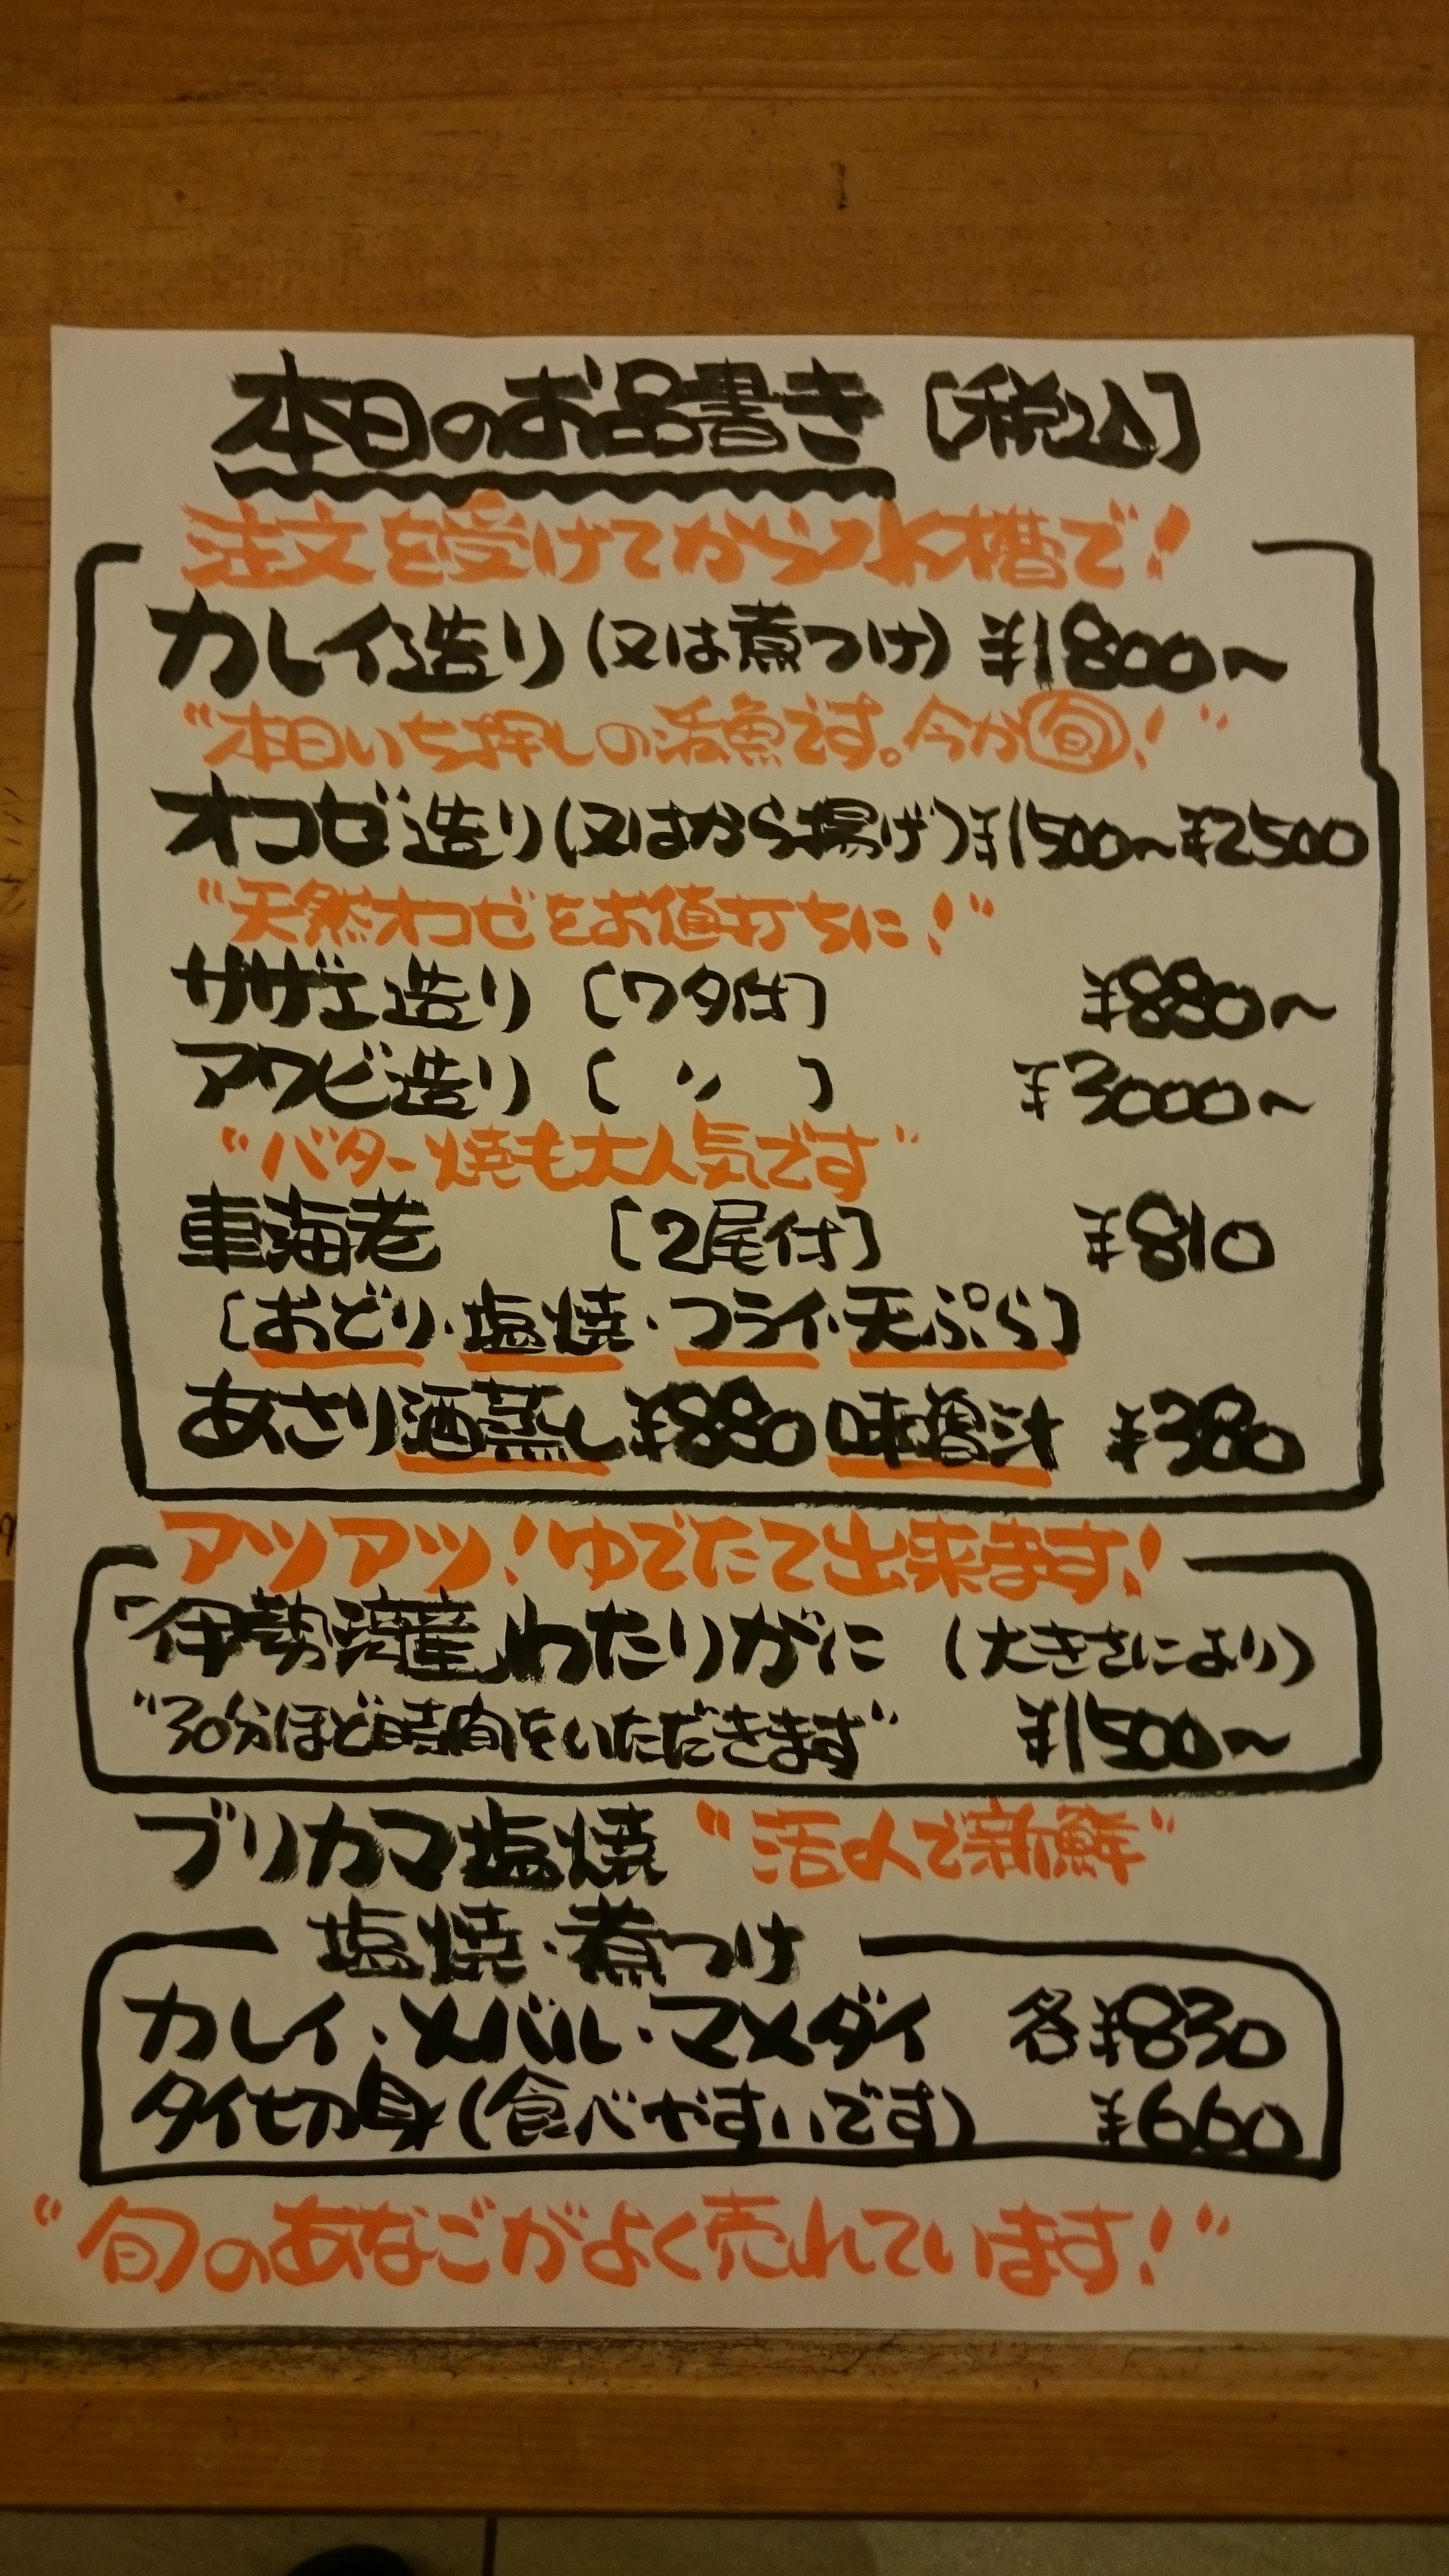 本日のお品書き [税込]
注文を受けてから水槽で!
カレイ造り(又は煮つけ) ¥1800〜
"本日いち押しの活魚です。今が旬!"
オコゼ造り(又はから揚げ) ¥1500〜¥2500
"天然オコゼをお値打ちに!"
サザエ造り [ワタ付] ¥880〜
アワビ造り [ 〃 ] ¥3000〜
"バター焼も大人気です"
車海老 [2尾付] ¥810
[おどり・塩焼・フライ・天ぷら]
あさり酒蒸し ¥880 味噌汁 ¥380
アツアツ!ゆでたて出来ます!
「伊勢湾産」わたりがに (大きさにより)
"30分ほど時間をいただきます" ¥1500〜
ブリカマ塩焼 "活〆で新鮮"
塩焼・煮つけ
カレイ・メバル・マメダイ 各¥830
タイ切身(食べやすいです) ¥660
"旬のあなごがよく売れています!"